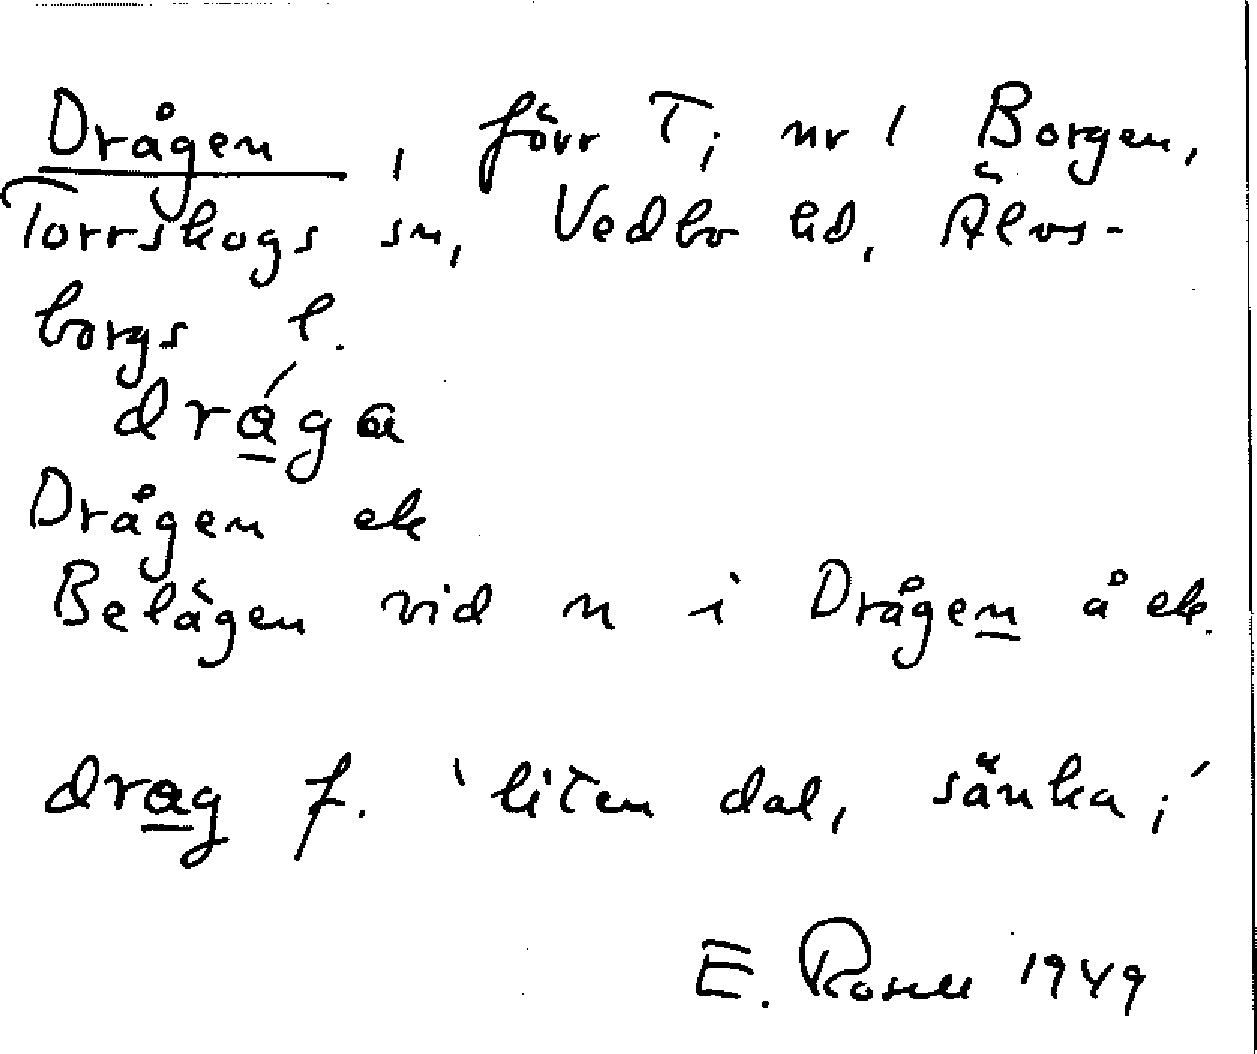 Drågen, förr T; nr 1 Borgen,
Torrskogs sn, Vedbo hd, Älvs-
borgs l.
drága
Drågen ek
Belägen vid n i Drågen å ek.
drag f. 'liten dal, sänka;'
E. Rosell 1949